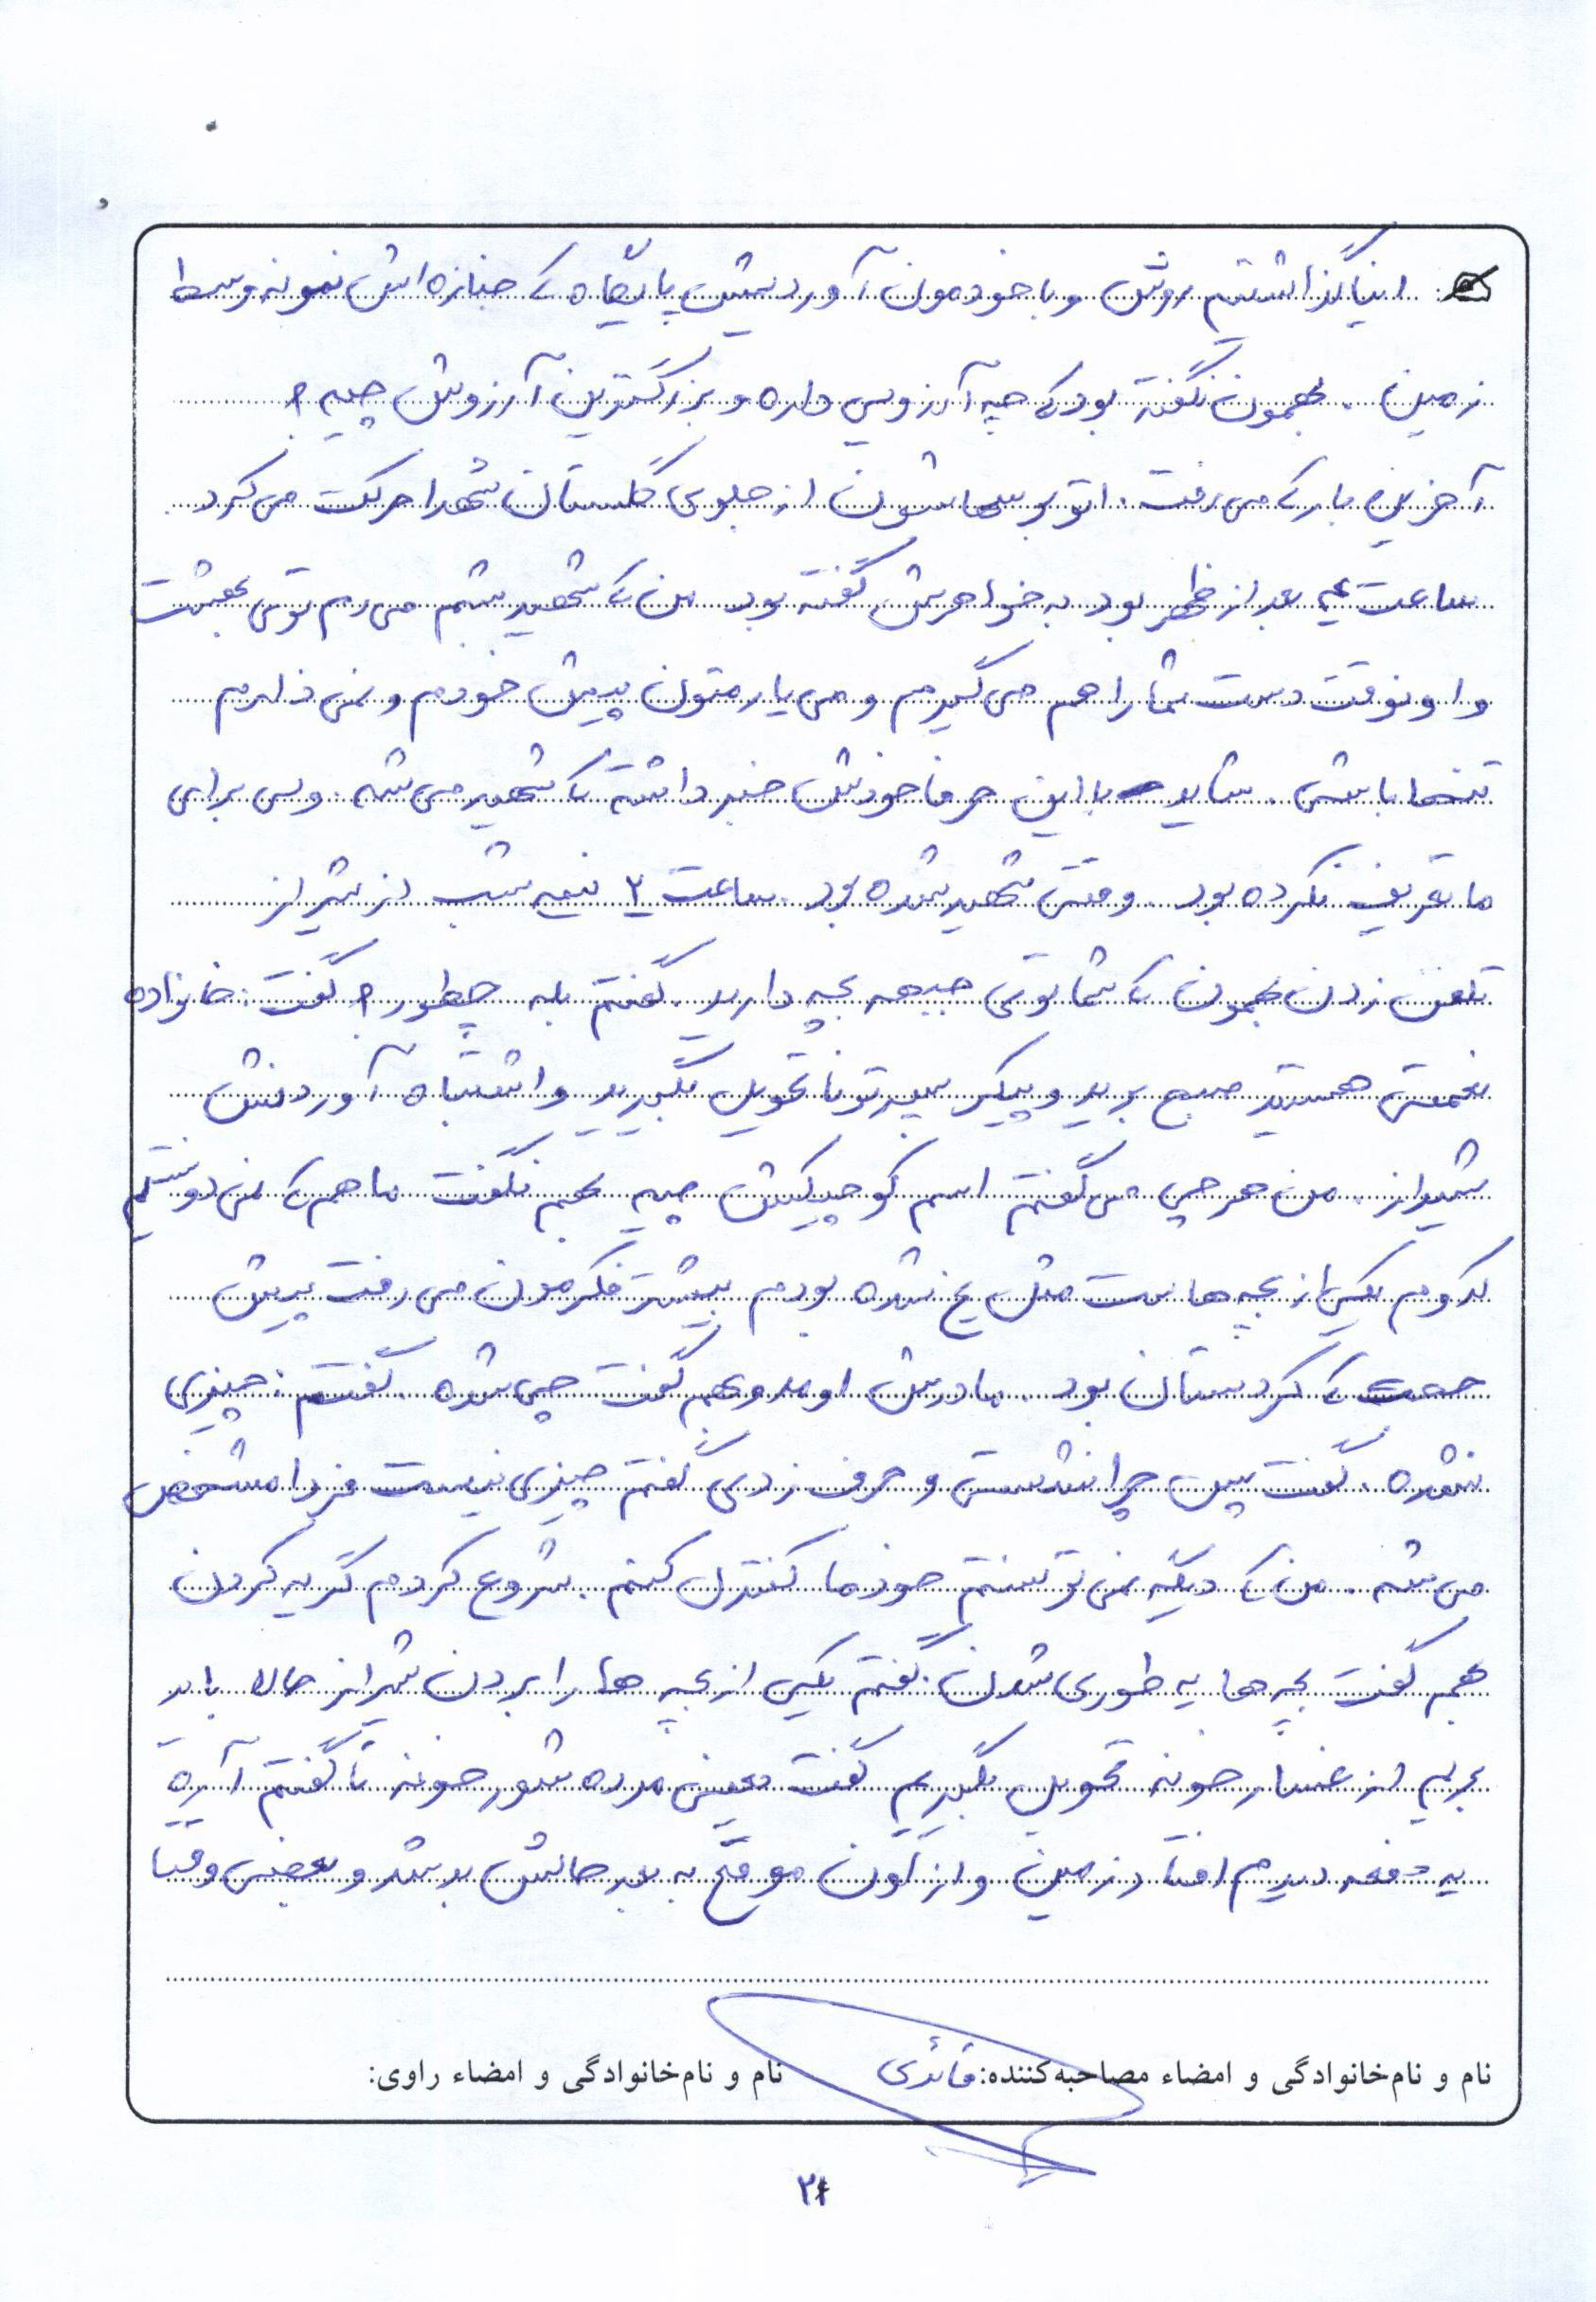 اینا گذاشتیم روش و با خودمون آوردیمش پایگاه که جنازه اش نمونه وسط
زمین . بهمون نگفته بود که چه آرزویی داره و بزرگترین آرزوش چیه ؟
آخرین بار که می رفت . اتوبوسهاشون از جلوی گلستان شهدا حرکت می کرد .
ساعت بعد از ظهر بود به خواهرش گفته بود من که شهید بشم می رم توی بهشت
و اونوقت دست شما را هم می گیرم و می یارمتون پیش خودم و نمی ذارم
تنها باشی . شاید با این حرفا خودش خبر داشته که شهید می شه . ولی برای
ما تعریف نکرده بود . وقتی شهید شده بود . ساعت ۲ نیمه شب از شیراز
تلفن زدن بهمون که شما توی جبهه بچه دارید . گفتم بله چطور ؟ گفت : خانواده
نعمتی هستید صبح برید و پیکر پسرتونا تحویل بگیرید و اشتباه آوردنش
شیراز . من هر چی می گفتم اسم کوچیکش چیه بهم نگفت ما هم که نمی دونستیم
کدوم یکی از بچه هاست مثل یخ شده بودم بیشتر فکرمون می رفت پیش
حجت که کردستان بود . مادرش اومد و بهم گفت چی شده . گفتم : چیزی
نشده . گفت پس چرا نشستی و حرف زدی گفتم چیزی نیست فردا مشخص
می شه . من که دیگه نمی تونستم خودما کنترل کنم . شروع کردم گریه کردن
بهم گفت بچه ها یه طوری شدن . گفتم یکی از بچه ها را بردن شیراز حالا باید
بریم از غسار خونه تحویل بگیریم گفت یعنی مرده شور خونه تا گفتم آره
یه دفعه دیدم افتاد زمین و از اون موقع به بعد حالش بد شد و بعضی وقتا
نام و نام‌خانوادگی و امضاء مصاحبه‌کننده: قائدی
نام و نام‌خانوادگی و امضاء راوی: